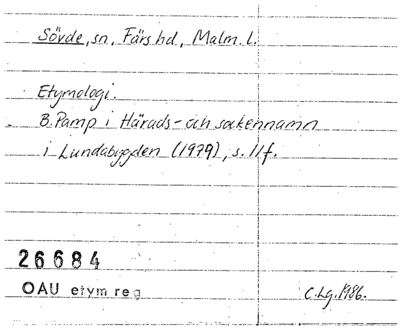 Sövde, sn, Färs hd, Malm. l.
Etymologi.
B. Pamp i Härads- och sockennamn
i Lundabygden (1979), s. 11f.
26684
OAU etym reg
C. Lg. 1986.